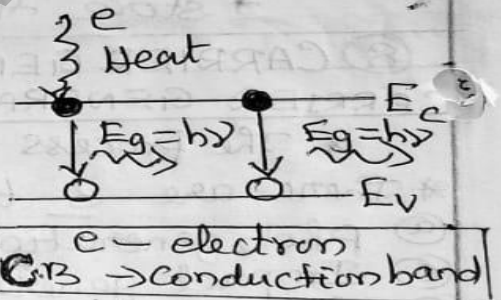 e
Heat
Ec
Eg=hν Eg=hν
Ev
e - electron
C.B → conduction band